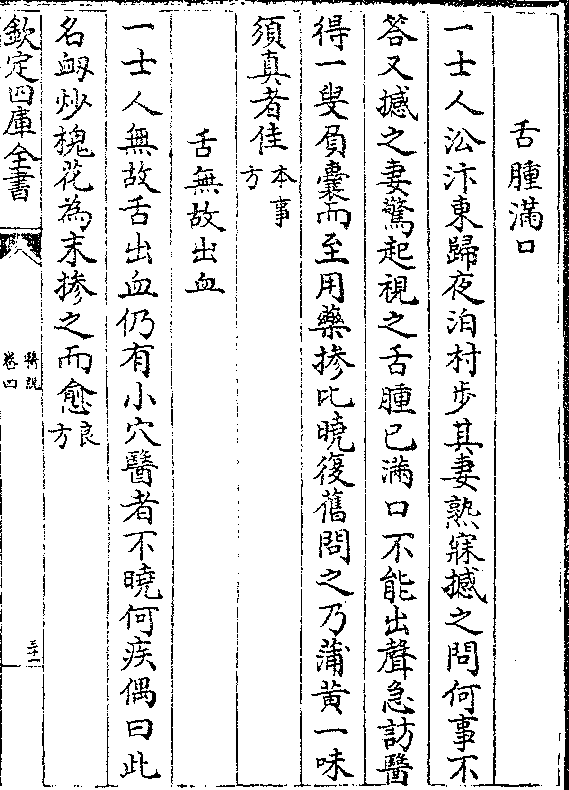 舌腫滿口
一士人㳂汴東歸夜泊村步其妻熟寐撼之問何事不
答又撼之妻驚起視之舌腫已滿口不能出聲急訪醫
得一叟負囊而至用藥摻比曉復舊問之乃蒲黃一味
須真者佳本事方
舌無故出血
一士人無故舌出血仍有小穴醫者不曉何疾偶曰此
名衂炒槐花為末摻之而愈良方
欽定四庫全書
醫説
卷四
三十一